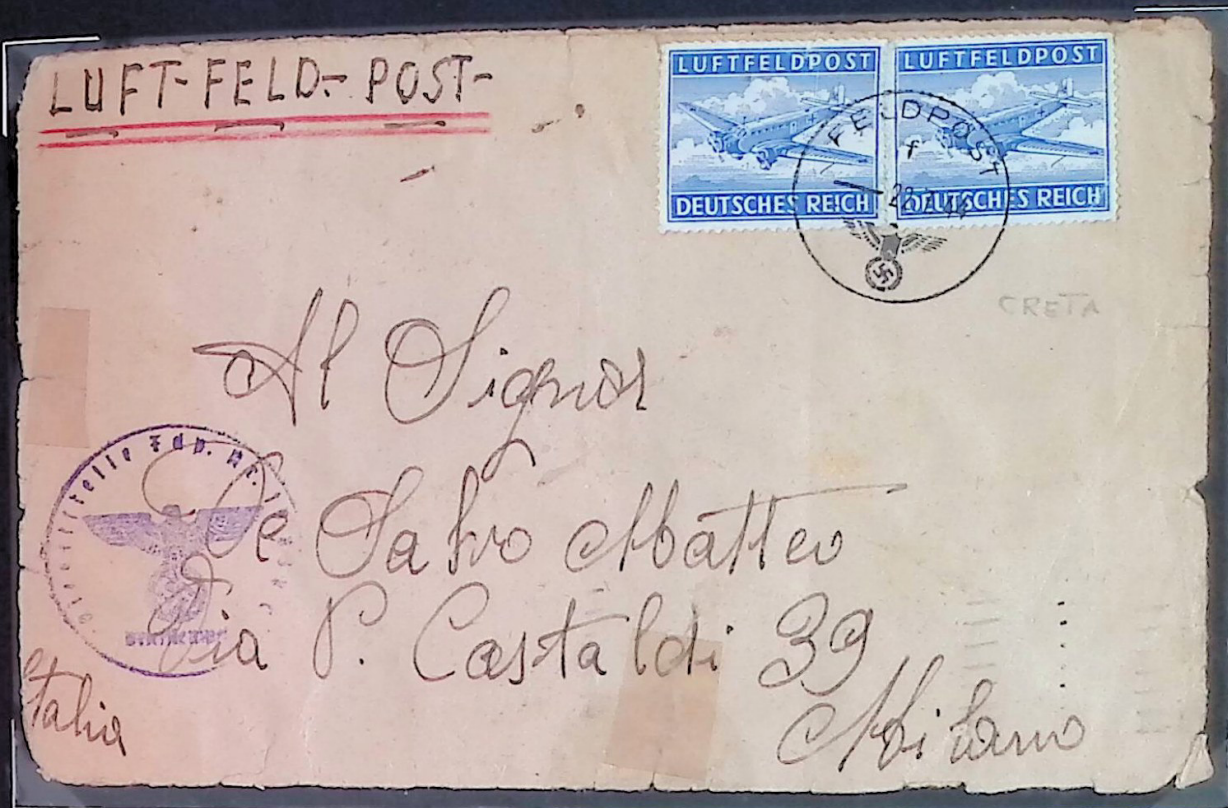 LUFT-FELD-POST-
LUFTFELDPOST
DEUTSCHES REICH
LUFTFELDPOST
DEUTSCHES REICH
FELDPOST
f
CRETA
Al Signor
De Salvo Matteo
Via P. Castaldi 39
Milano
Italia
Dienststelle Fdp. Nr.